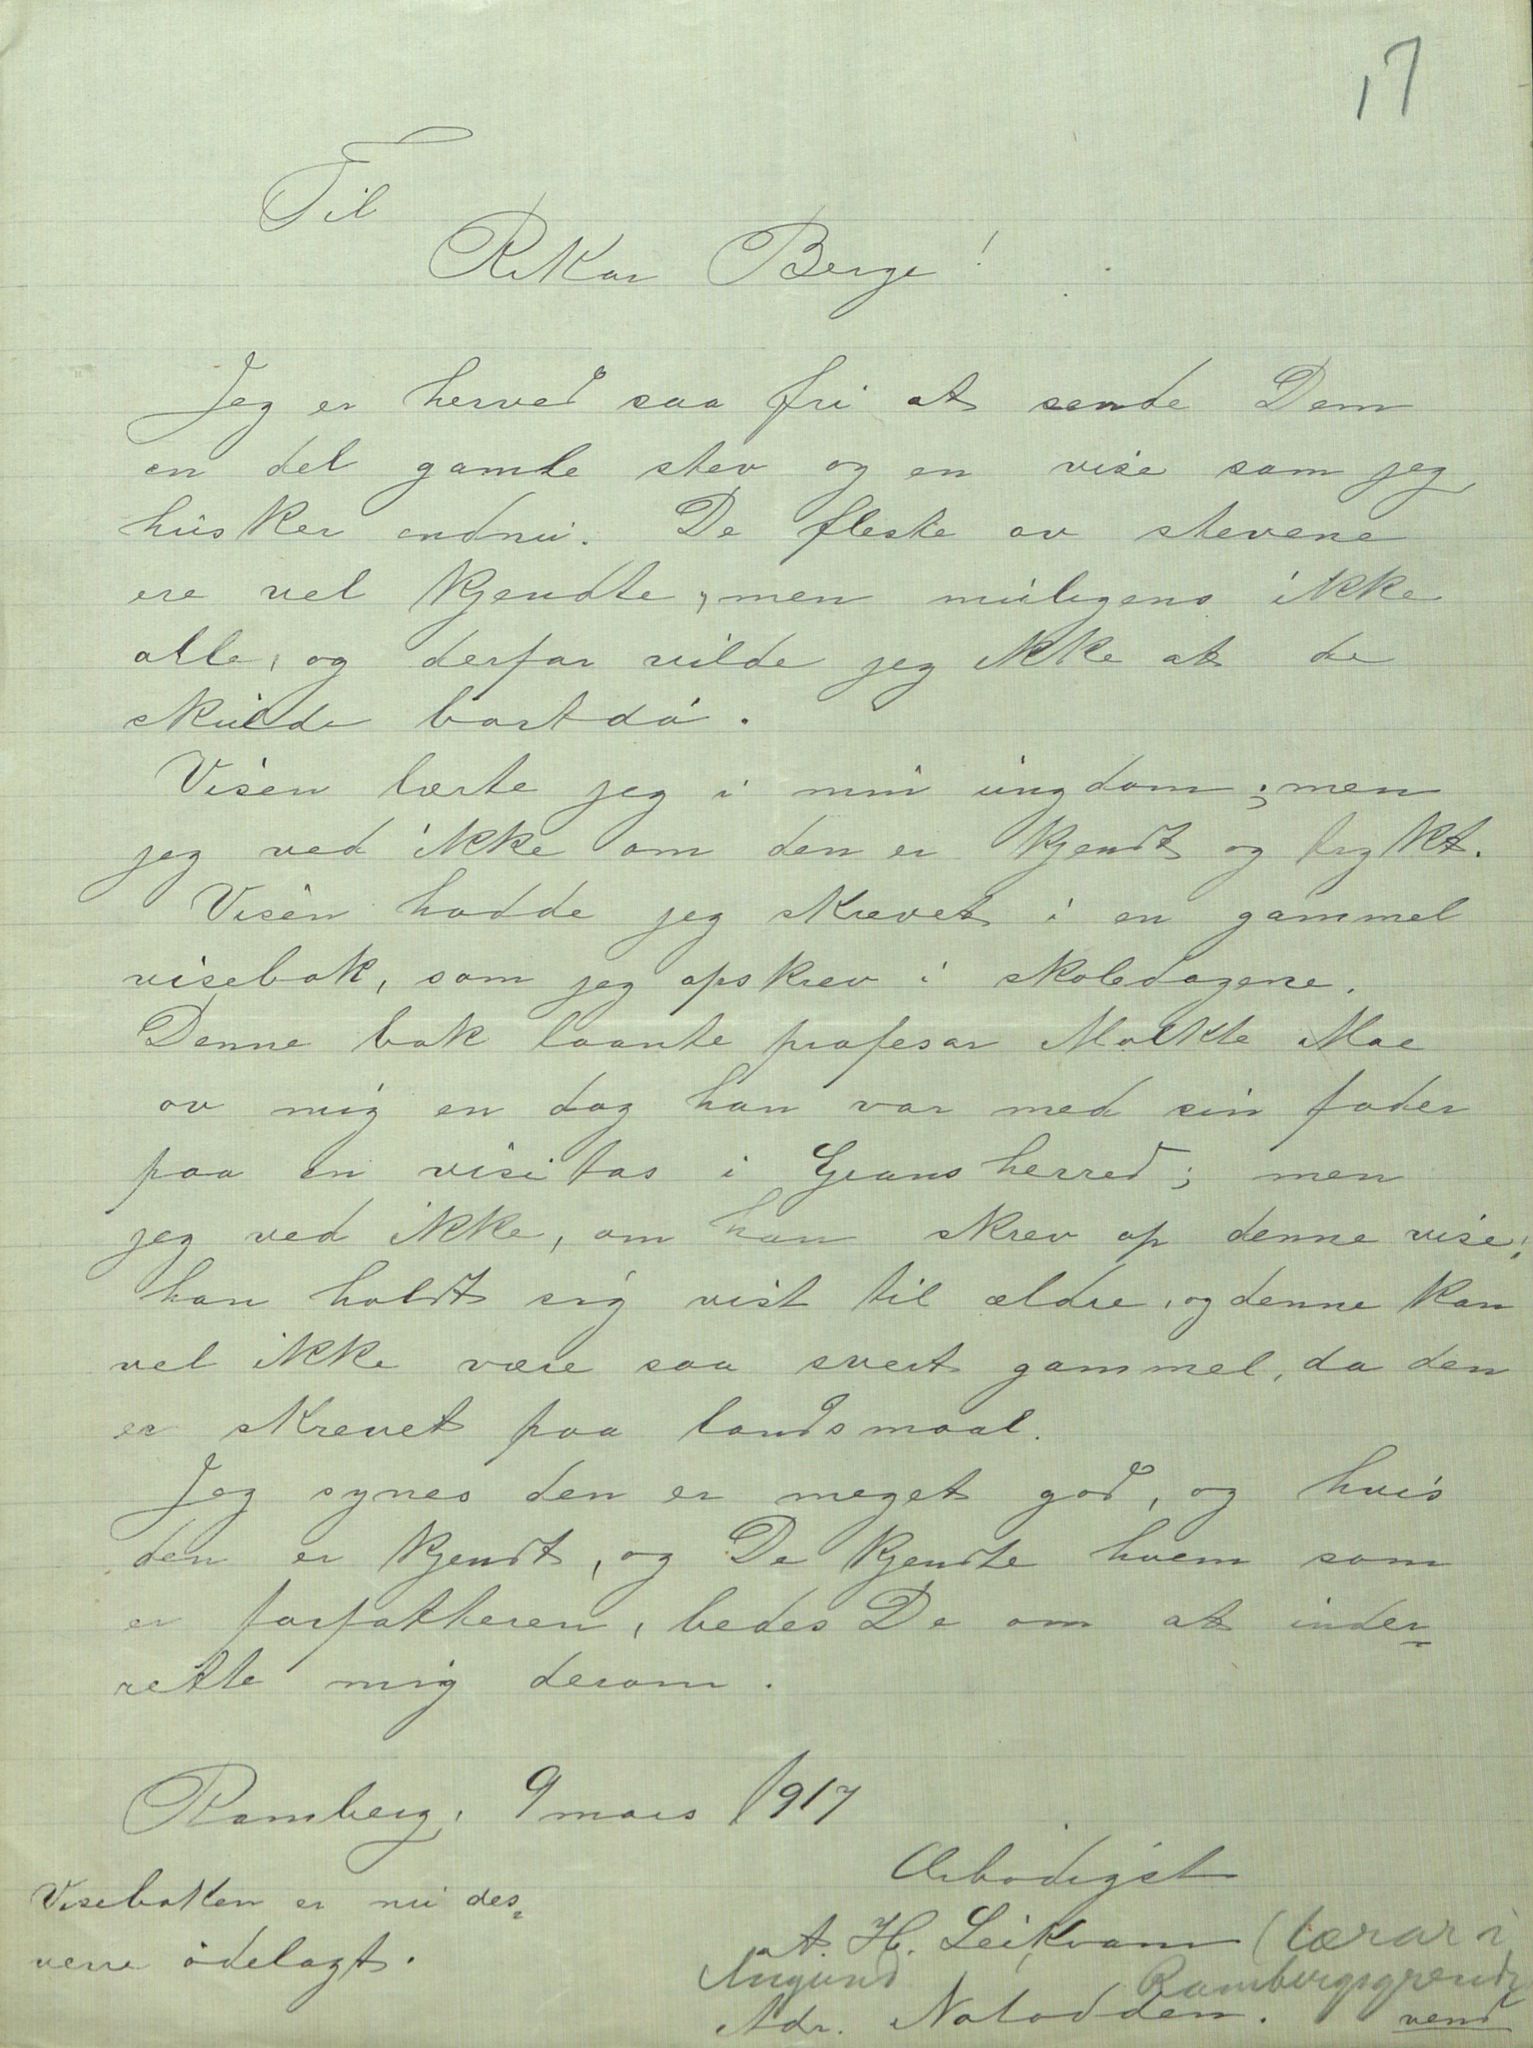 17
Til
Rikar Berge!
Jeg er herved saa fri at sende Dem
en del gamle stev og en vise som jeg
husker endnu. De fleste av stevene
ere vel kjendte, men muligens ikke
alle, og derfor vilde jeg ikke at de
skulde bortdö.
Visen lærte jeg i min ungdom; men
jeg ved ikke om den er kjendt og trykt.
Visen hadde jeg skrevet i en gammel
visebok, som jeg opskrev i skoledagene.
Denne bok laante profesor Molkte Moe
av mig en dag han var med sin fader
paa en visitas i Gransherred; men
jeg ved ikke, om han skrev op denne vise;
han holdt sig vist til ældre, og denne kan
vel ikke være saa svert gammel, da den
er skrevet paa landsmaal.
Jeg synes den er meget god, og hvis
den er kjendt, og De kjendte hvem som
er forfatteren, bedes De om at under=
rette mig derom.
Ramberg, 9 mars 1917
Ærbødigst
Viseboken er nu des=
verre ödelagt.
A. H. Leikvam (lærar i
Augund Rambergsgrendi
Adr. Notodden. vend